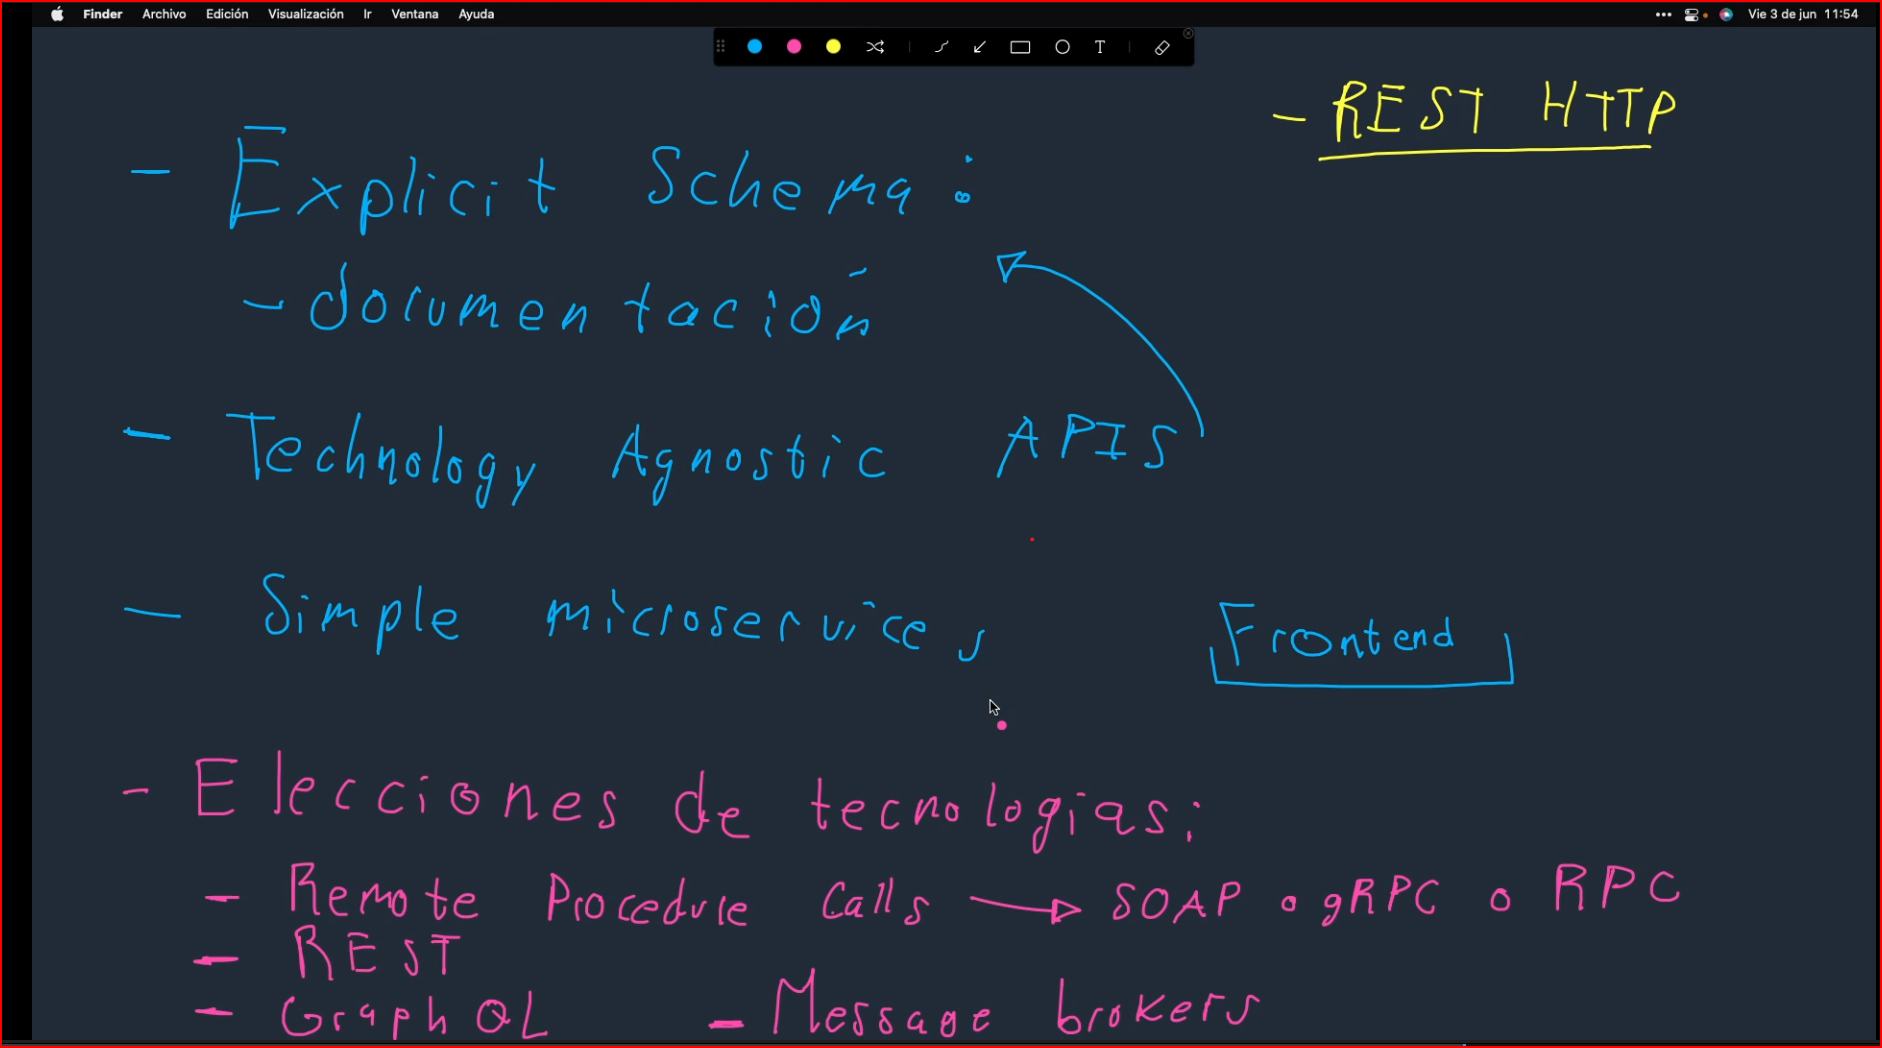 Finder Archivo Edición Visualización Ir Ventana Ayuda ••• Vie 3 de jun 11:54
T
- REST HTTP
- Explicit Schema:
- documentación
- Technology Agnostic APIS
- Simple microservices
Frontend
- Elecciones de tecnologias:
- Remote Procedure Calls → SOAP o gRPC o RPC
- REST
- GraphQL - Message brokers